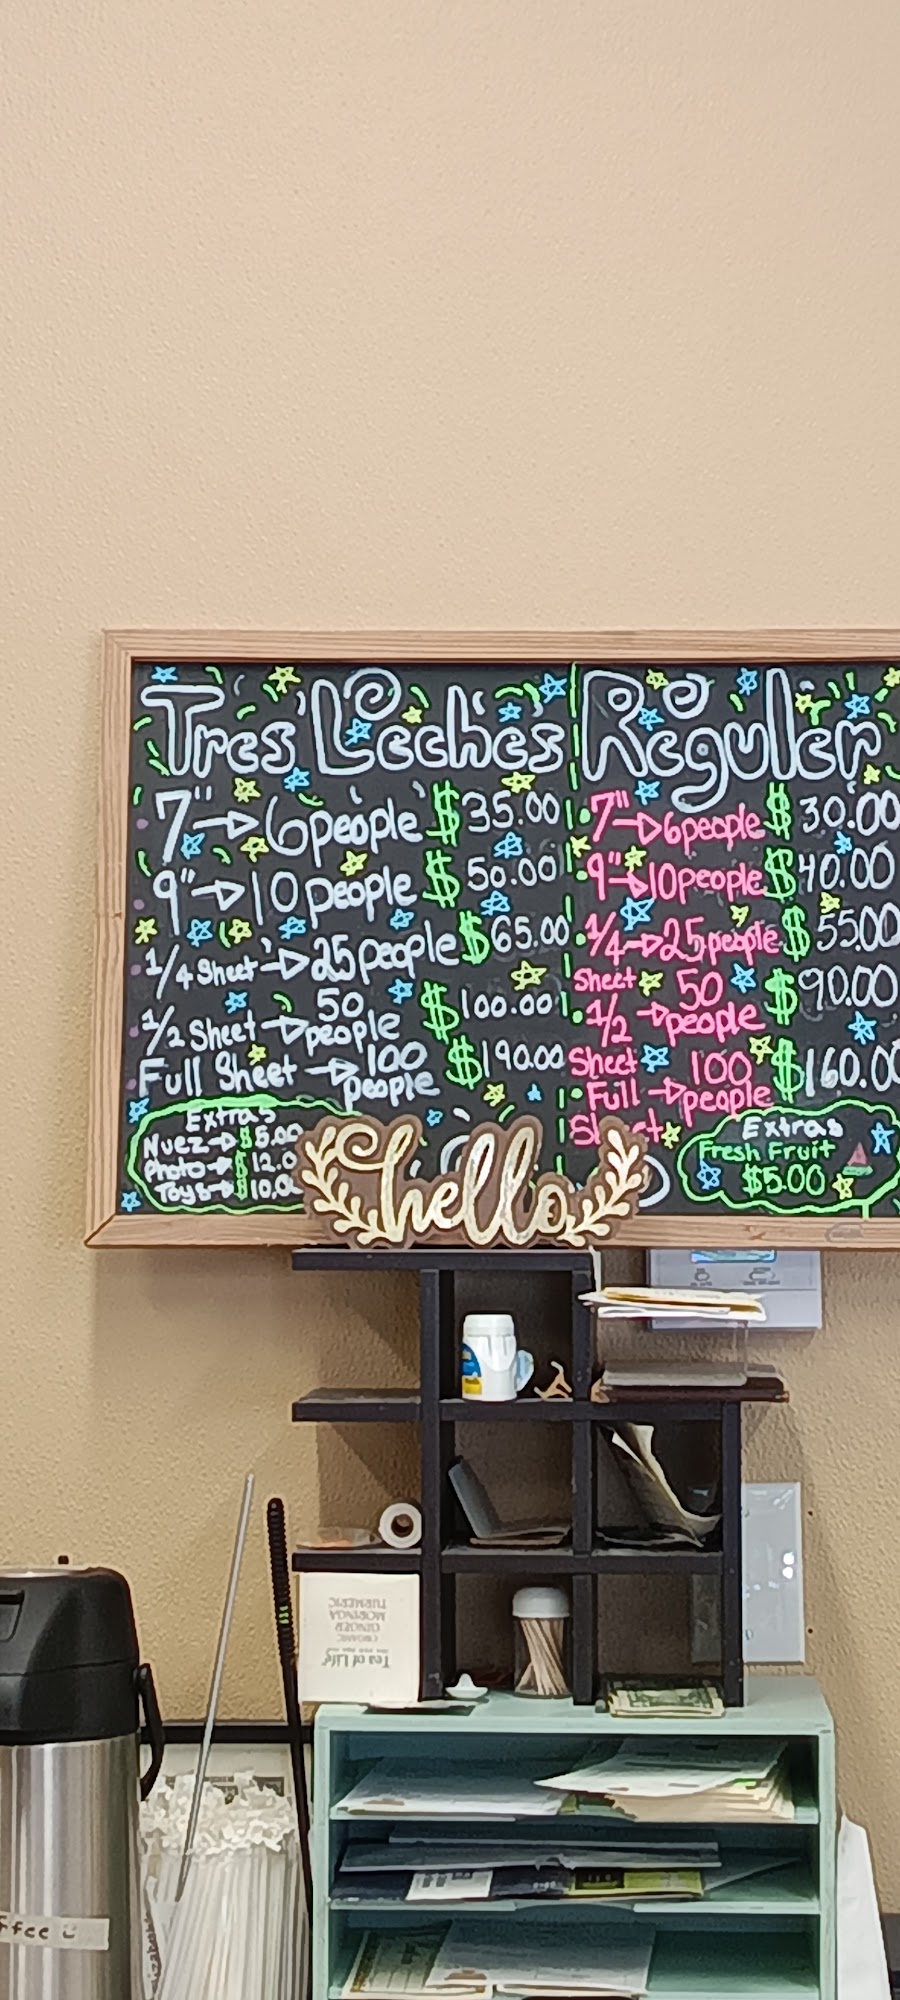 Tres Leches
7" → 6 people $35.00
9" → 10 people $50.00
1/4 Sheet → 25 people $65.00
1/2 Sheet → 50 people $100.00
Full Sheet → 100 people $190.00
Extras
Nuez → $5.00
Photo → $12.0
Toys → $10.0
Regular
7" → 6 people $30.00
9" → 10 people $40.00
1/4 Sheet → 25 people $55.00
1/2 Sheet → 50 people $90.00
Full Sheet → 100 people $160.00
Extras
Fresh Fruit
$5.00
hello
Tea of Life
ORGANIC
GINGER
MORINGA
TURMERIC
ffee